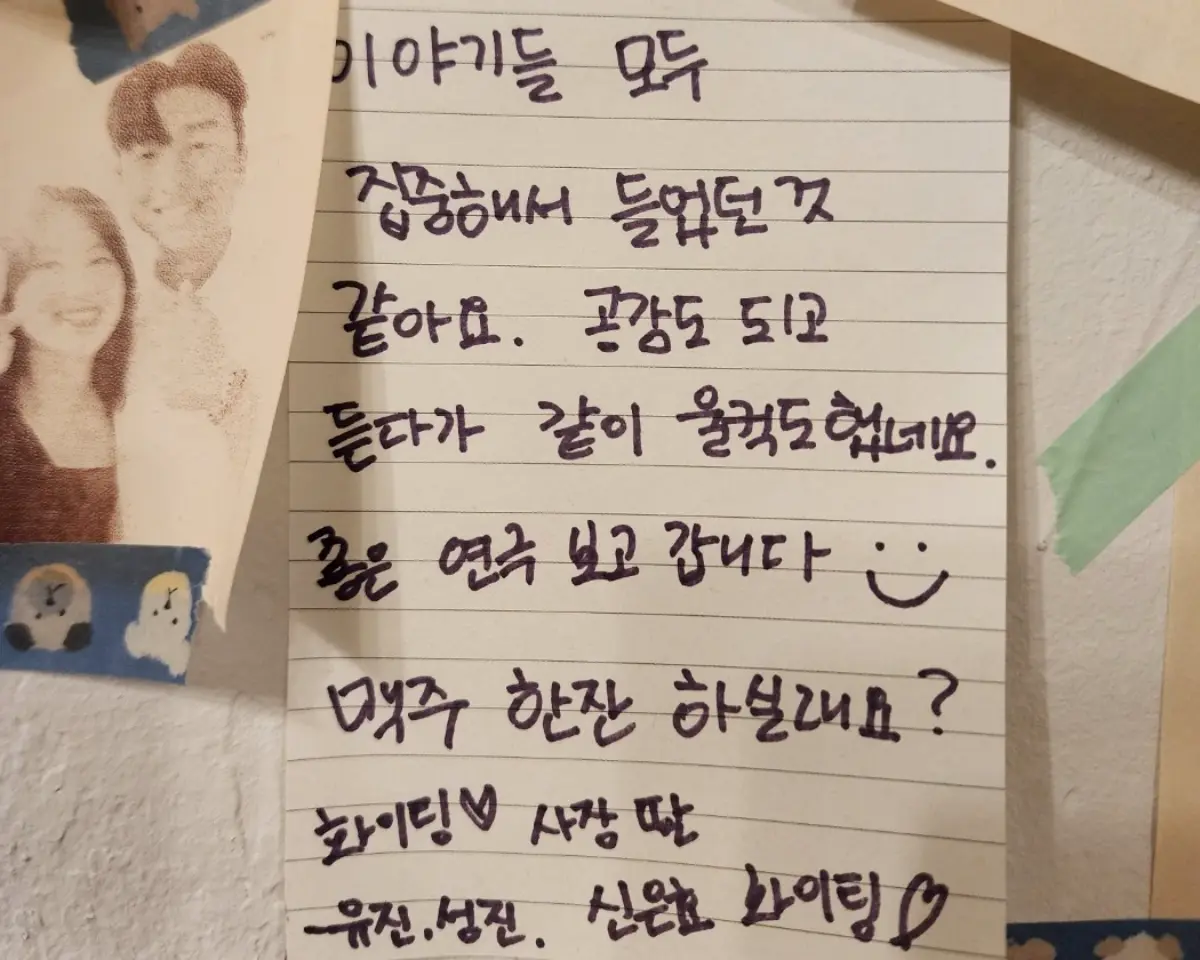 이야기들 모두
집중해서 들었던 것
같아요. 공감도 되고
듣다가 같이 울컥도 했네요.
좋은 연극 보고 갑니다
맥주 한잔 하실래요?
화이팅♡ 사장 딸
유진.성진. 신은효 화이팅♡